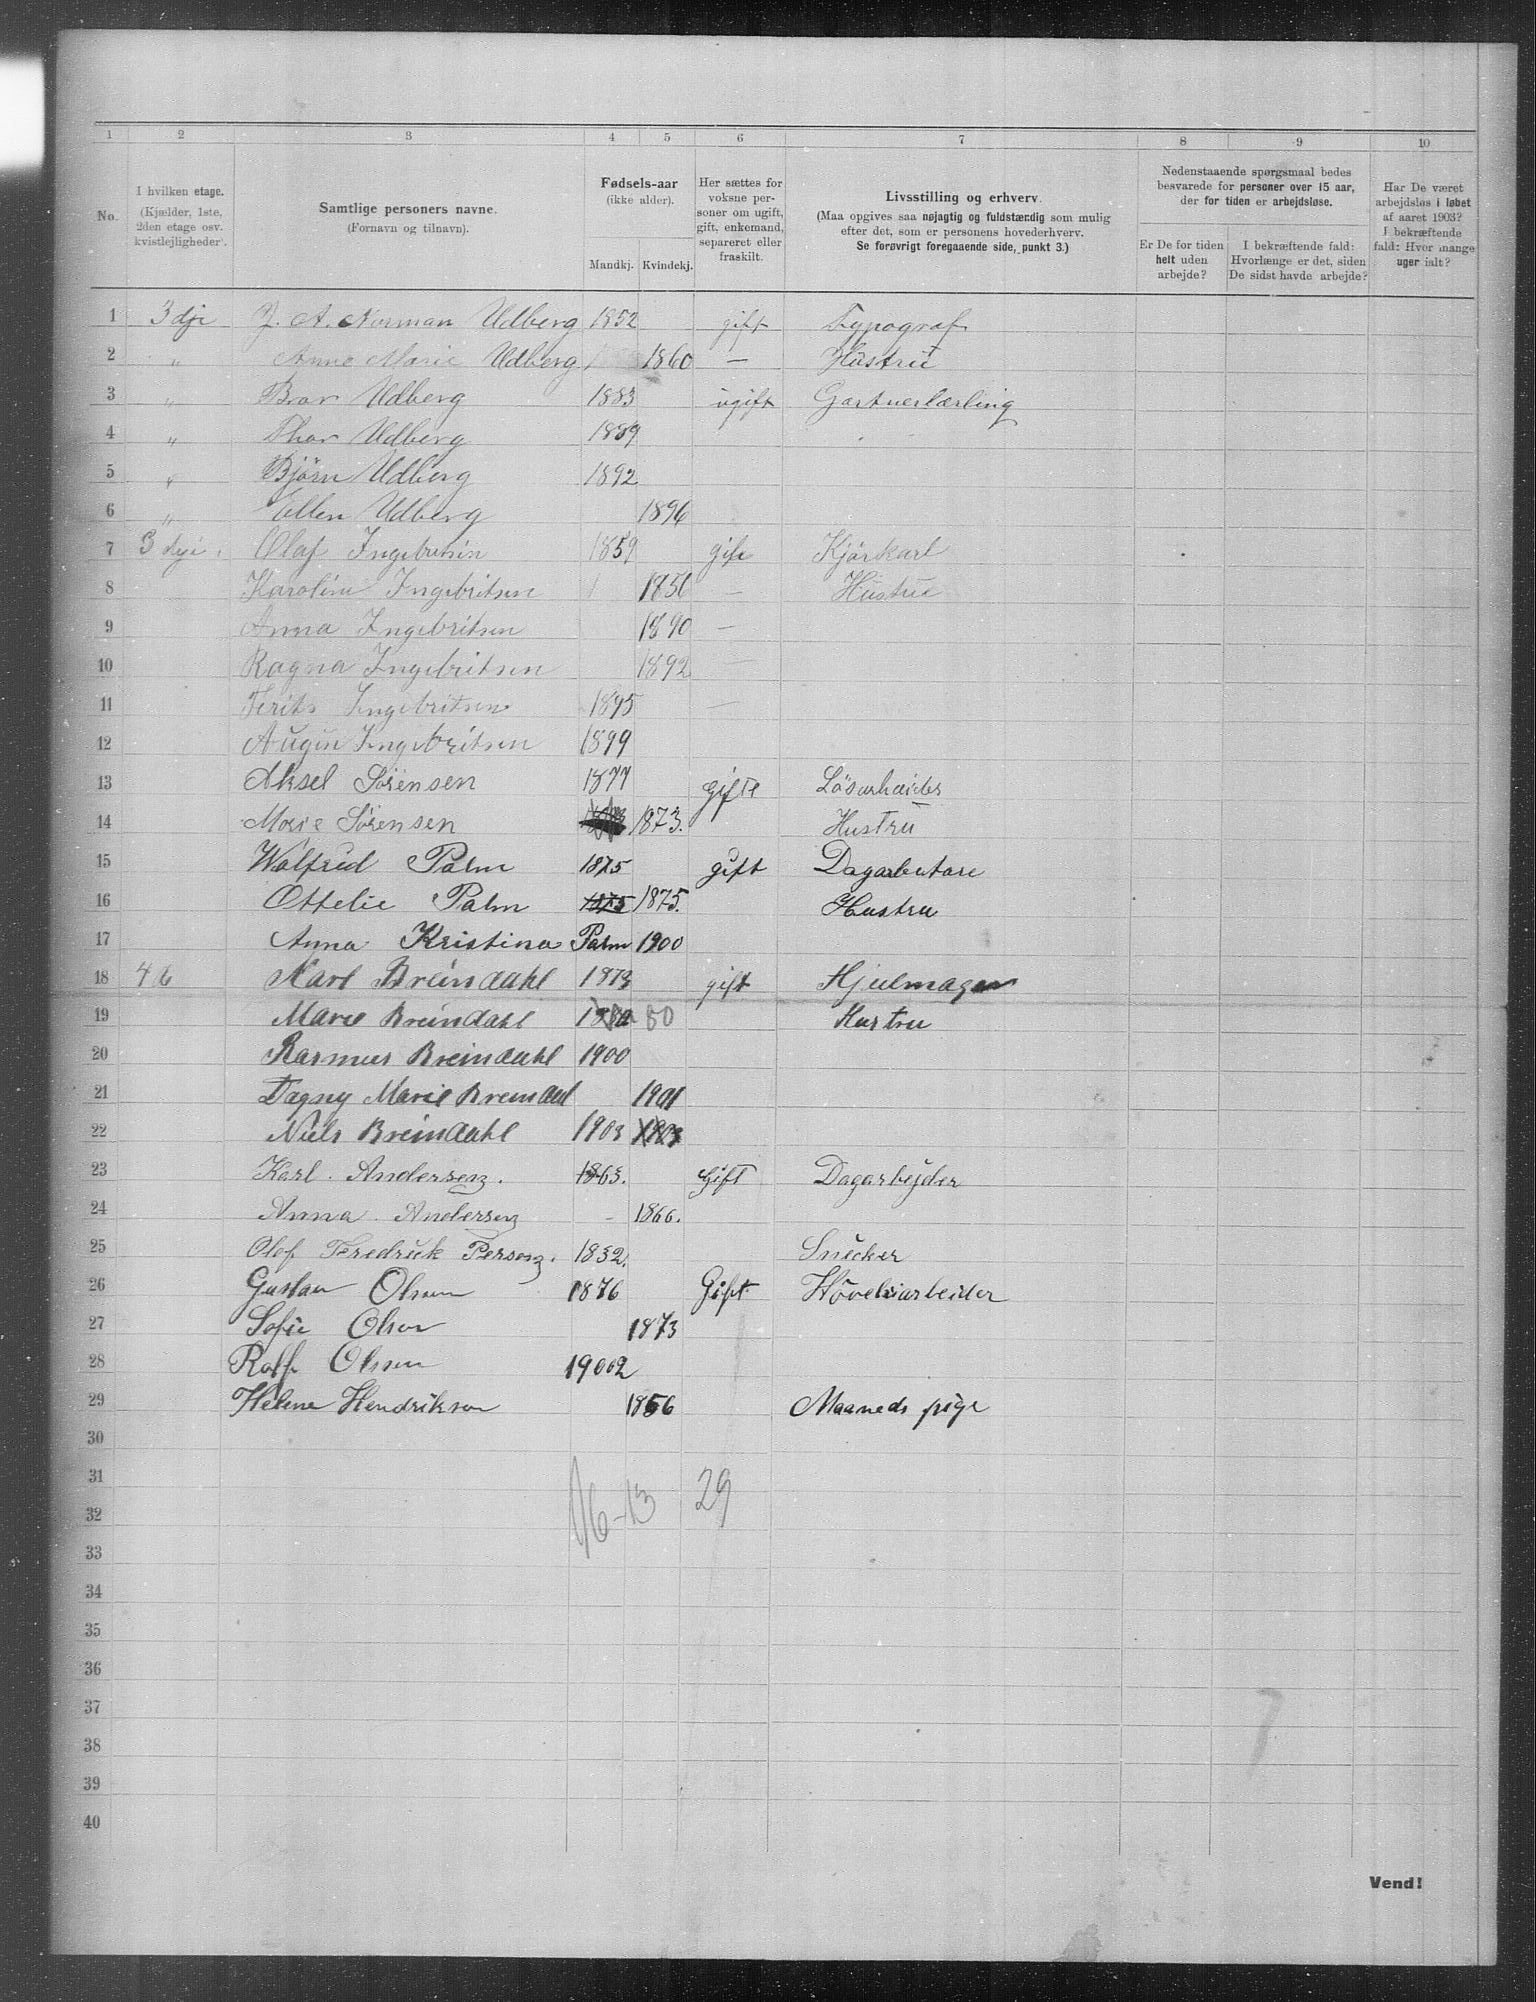 1 2 3 4 5 6 7 8 9 10
No.
I hvilken etage.
(Kjælder, 1ste, 2den etage osv. kvistlejligheder).
Samtlige personers navne.
(Fornavn og tilnavn).
Fødsels-aar
(ikke alder).
Mandkj. Kvindekj.
Her sættes for voksne personer om ugift, gift, enkemand, separeret eller fraskilt.
Livsstilling og erhverv.
(Maa opgives saa nøjagtig og fuldstændig som mulig efter det, som er personens hovederhverv.
Se forøvrigt foregaaende side, punkt 3.)
Nedenstaaende spørgsmaal bedes besvarede for personer over 15 aar, der for tiden er arbejdsløse.
Er De for tiden helt uden arbejde?
I bekræftende fald: Hvorlænge er det, siden De sidst havde arbejde?
Har De været arbejdsløs i løbet af aaret 1903? I bekræftende fald: Hvor mange uger ialt?
1 3 dje J. A. Norman Udberg 1852 gift Typograf
2 " Anne Marie Udberg 1860 — Hustru
3 " Bror Udberg 1883 ugift Gartnerlærling
4 " Thor Udberg 1889
5 " Bjørn Udberg 1892
6 " Ellen Udberg 1896
7 Olaf Ingebritsen 1859 gift Kjørkarl
8 Karoline Ingebritsen 1856 — Hustru
9 Anna Ingebritsen 1890 —
10 Ragna Ingebritsen 1892 —
11 Ingebritsen 1895 —
12 Ingebritsen 1899
13 Aksel Sørensen 1877 gifte Løsarbeider
14 Marie Sørensen 1873. Hustru
15 Wolfrid Palm 1875 gift Dagarbetare
16 Ottelie Palm 1875 1875. Hustru
17 Anna Kristina Palm 1900
18 4 6 Karl Breindahl 1873 gift Hjulmager
19 Marie Breindahl 1880 80 Hustru
20 Rasmus Breindahl 1900
21 Dagny Marie Breindal 1901
22 Niels Breindahl 1903 1903
23 Karl. Andersen. 1863. Gift Dagarbejder
24 Anna. Andersen - 1866.
25 Olof Fredrick Person. 1832. Snecker
26 Gustav Olsen 1876 Gift Høvelarbeider
27 Sofie Olsen 1873
28 Rolf Olsen 19002
29 Helene Hendrikson 1856 Maaneds pige
30
31
16-13 29
32
33
34
35
36
37
7
38
39
40
Vend!